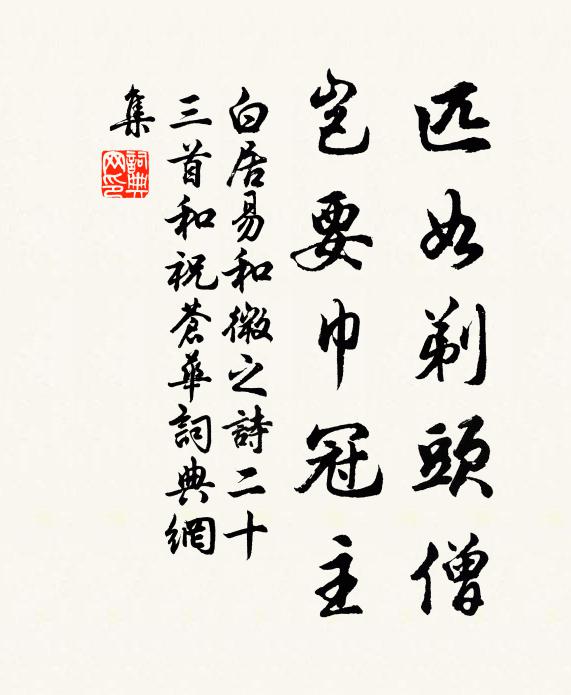 匹如剃頭僧
豈要巾冠主
白居易和微之詩二十
三首和祝蒼華詞典網
集
詞典
网印